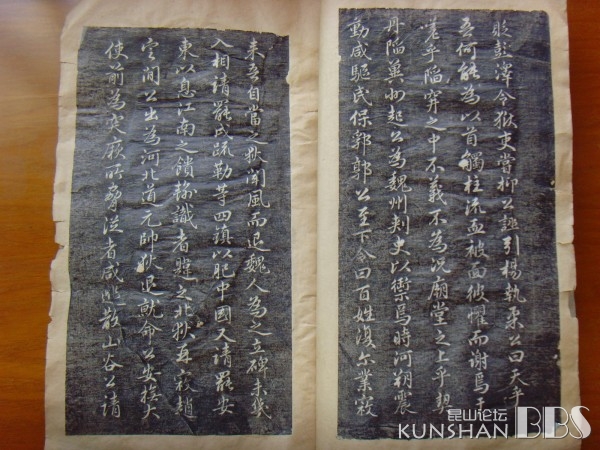 貶彭澤令獄吏嘗抑公誣引楊執柔公曰天乎
吾何能為以首觸柱流血被面彼懼而謝焉于
嗟乎陷穽之中不義不為況廟堂之上乎契
丹陷冀州起公為魏州刺史以禦焉時河朔震
動咸驅民保郛郭公至下令曰百姓復尔業寇
来吾自當之狄聞風而退魏人為之立碑未幾
入相請罷戍疏勒等四鎮以肥中國又請罷安
東以息江南之饋輸識者韙之北狄再寇趙
定間公出為河北道元帥狄退就命公安撫大
使前為突厥所脅從者咸逃散山谷公請
昆山论坛
KUNSHAN BBS